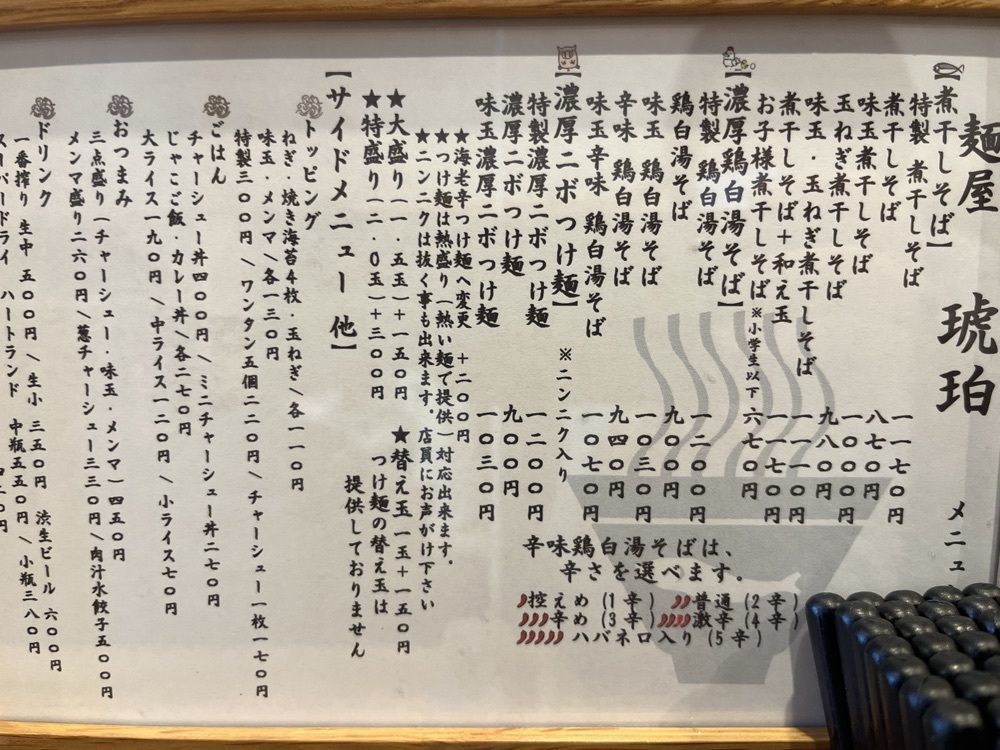 麺屋 琥珀 メニュ
【煮干しそば】
特製 煮干しそば 一一七〇円
煮干しそば 八七〇円
味玉煮干しそば 一〇〇〇円
玉ねぎ煮干しそば 九八〇円
味玉・玉ねぎ煮干しそば 一一一〇円
煮干しそば+和え玉 一一七〇円
お子様煮干しそば ※小学生以下 六七〇円
【濃厚鶏白湯そば】
特製 鶏白湯そば 一二〇〇円
鶏白湯そば 九〇〇円
味玉 鶏白湯そば 一〇三〇円
辛味 鶏白湯そば 九四〇円
味玉辛味 鶏白湯そば 一〇七〇円
【濃厚ニボつけ麺】 ※ニンニク入り
特製濃厚ニボつけ麺 一二〇〇円
濃厚ニボつけ麺 九〇〇円
味玉濃厚ニボつけ麺 一〇三〇円
★海老辛つけ麺へ変更 +二〇〇円
★つけ麺は熱盛り(熱い麺で提供)対応出来ます。
★ニンニクは抜く事も出来ます。店員にお声がけ下さい
★大盛り(一.五玉)+一五〇円 ★替え玉一玉+一五〇円
★特盛り(二.〇玉)+三〇〇円 つけ麺の替え玉は
提供しておりません
辛味鶏白湯そばは、
辛さを選べます。
控えめ(1辛) 普通(2辛)
辛め(3辛) 激辛(4辛)
ハバネロ入り(5辛)
【サイドメニュー 他】
トッピング
ねぎ・焼き海苔4枚・玉ねぎ/各一一〇円
味玉・メンマ/各一三〇円
特製三〇〇円/ワンタン五個二二〇円/チャーシュー一枚一七〇円
ごはん
チャーシュー丼四〇〇円/ミニチャーシュー丼二七〇円
じゃこご飯・カレー丼/各二七〇円
大ライス一九〇円/中ライス一二〇円/小ライス七〇円
おつまみ
三点盛り(チャーシュー・味玉・メンマ)四五〇円
メンマ盛り二六〇円/葱チャーシュー三三〇円/肉汁水餃子五〇〇円
ドリンク
一番搾り 生中 五〇〇円/生小 三五〇円 渋生ビール 六〇〇円
スーパードライ ハートランド 中瓶五五〇円/小瓶三八〇円